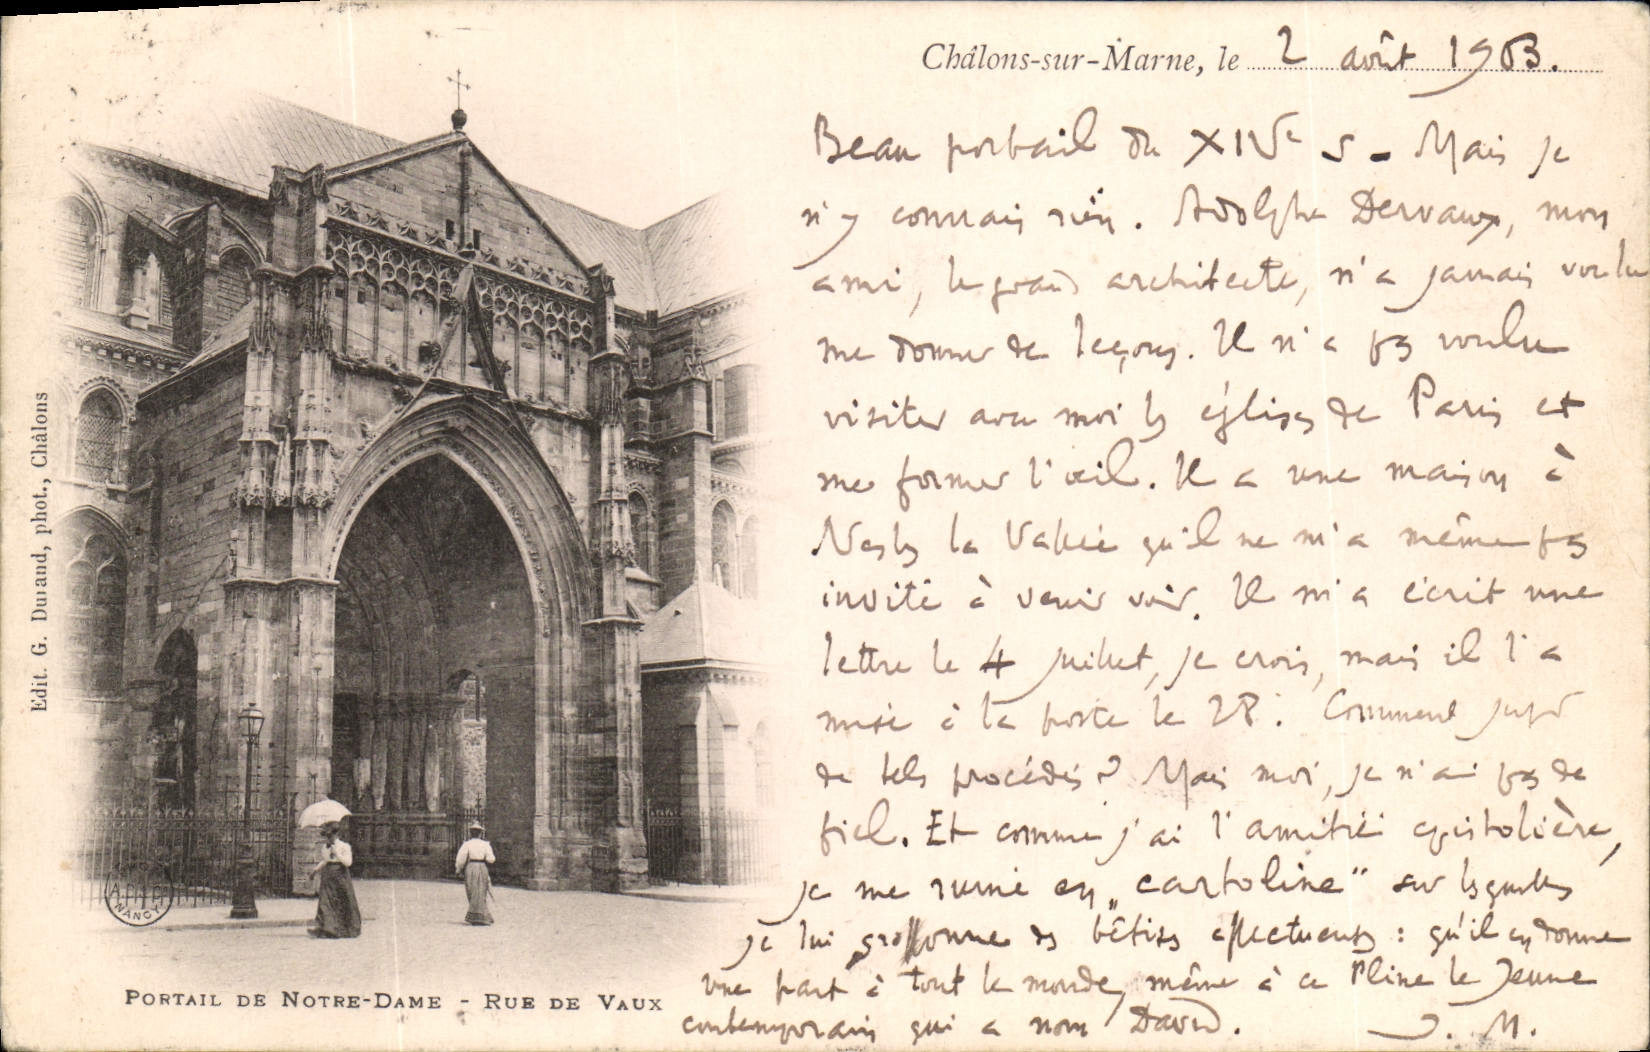 Châlons-sur-Marne, le 2 août 1903.
Beau portail du XIVe s - Mais je
n'y connais rien. Adolphe Dervaux, mon
ami, le grand architecte, n'a jamais voulu
me donner de leçons. Il n'a pas voulu
visiter avec moi les églises de Paris et
me former l'œil. Il a une maison à
Nesles la Vallée qu'il ne m'a même pas
invité à venir voir. Il m'a écrit une
lettre le 4 juillet, je crois, mais il l'a
mise à la porte le 28. Comment juger
de tels procédés ? Mais moi, je n'ai pas de
fiel. Et comme j'ai l'amitié épistolière,
je me ruine en „cartoline" sur lesquelles
je lui griffonne des bêtises affectueuses : qu'il en donne
une part à tout le monde, même à ce Pline le Jeune
contemporain qui a nom David. J. M.
Edit. G. Durand, phot., Châlons
NANCY
PORTAIL DE NOTRE-DAME - RUE DE VAUX